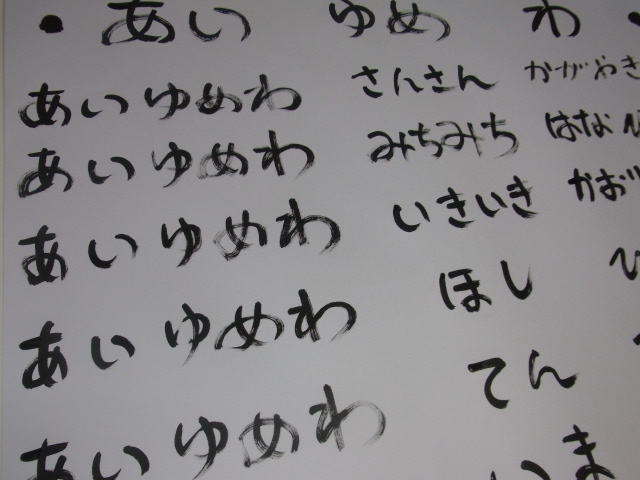 ● あい ゆめ わ
あいゆめわ さんさん かがやき
あいゆめわ みちみち はな
あいゆめわ いきいき かおり
あいゆめわ ほし
あいゆめわ てん
いま